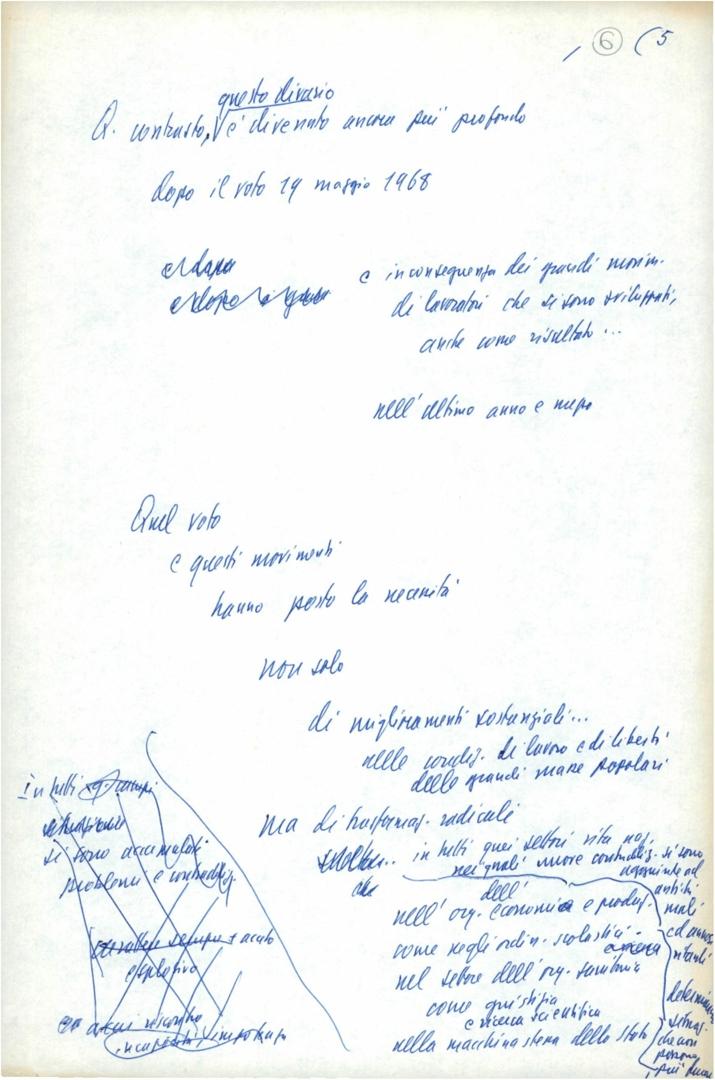 6 5
questo divario
Q. contrasto, è divenuto ancora più profondo
dopo il voto 19 maggio 1968
e dopo
e in conseguenza dei grandi movim.
di lavoratori che si sono sviluppati,
anche come risultato...
nell'ultimo anno e mezzo
Quel voto
e questi movimenti
hanno posto la necessità
non solo
di miglioramenti sostanziali...
nelle condiz. di lavoro e di libertà
delle grandi masse popolari
ma di trasformaz. radicali
in tutti quei settori vita naz.
nei quali nuove contraddiz. si sono
aggiunte ad
antichi
mali
dell'
nell'org. economica e produt.
come negli ordin. scolastici
nel settore dell'org. sanitaria
come giustizia
e ricerca scientifica
nella macchina stessa dello Stato
che non
possono
più
In tutti q. campi
situazione
si sono accumulati
problemi e contraddiz.
sempre + acuto
esplosivo
incapacità, impotenza